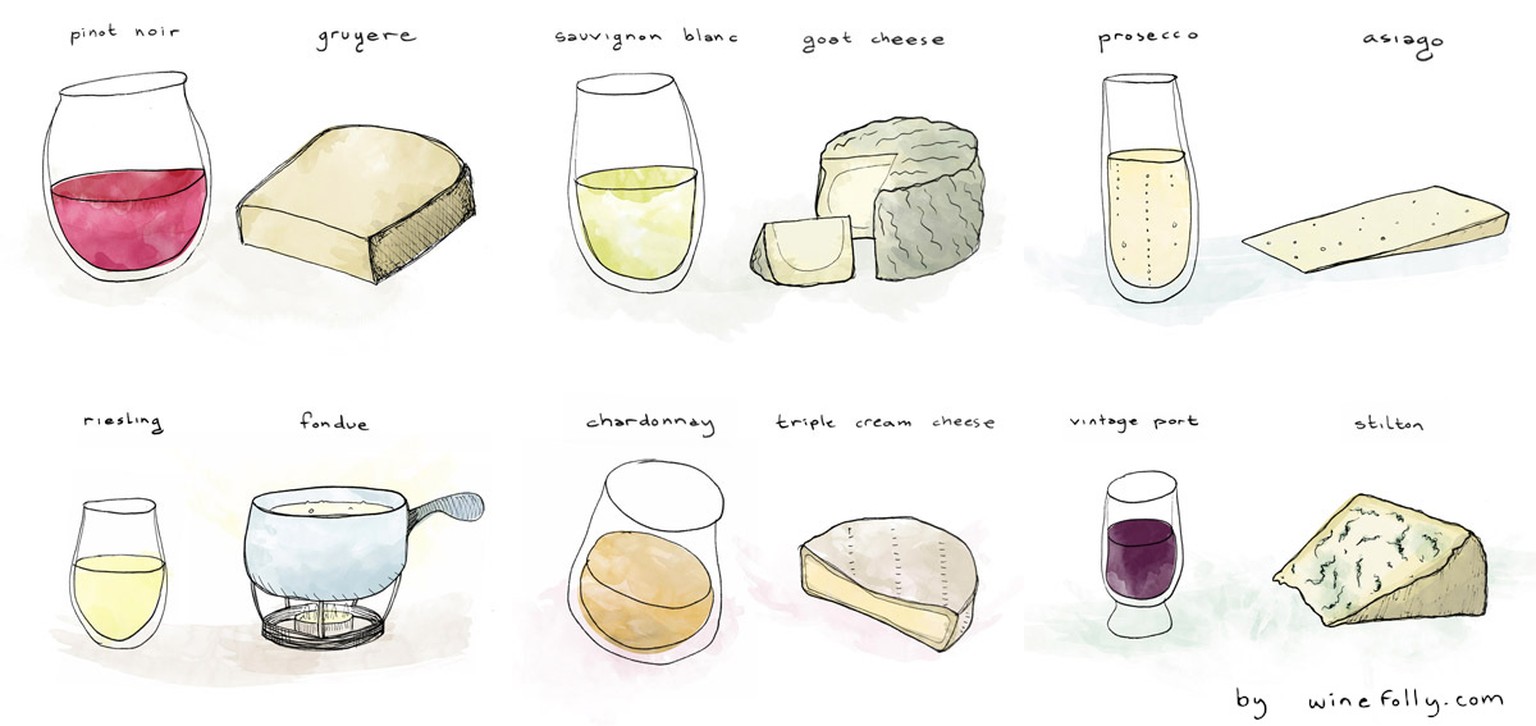 pinot noir
gruyere
sauvignon blanc
goat cheese
prosecco
asiago
riesling
fondue
chardonnay
triple cream cheese
vintage port
stilton
by winefolly.com